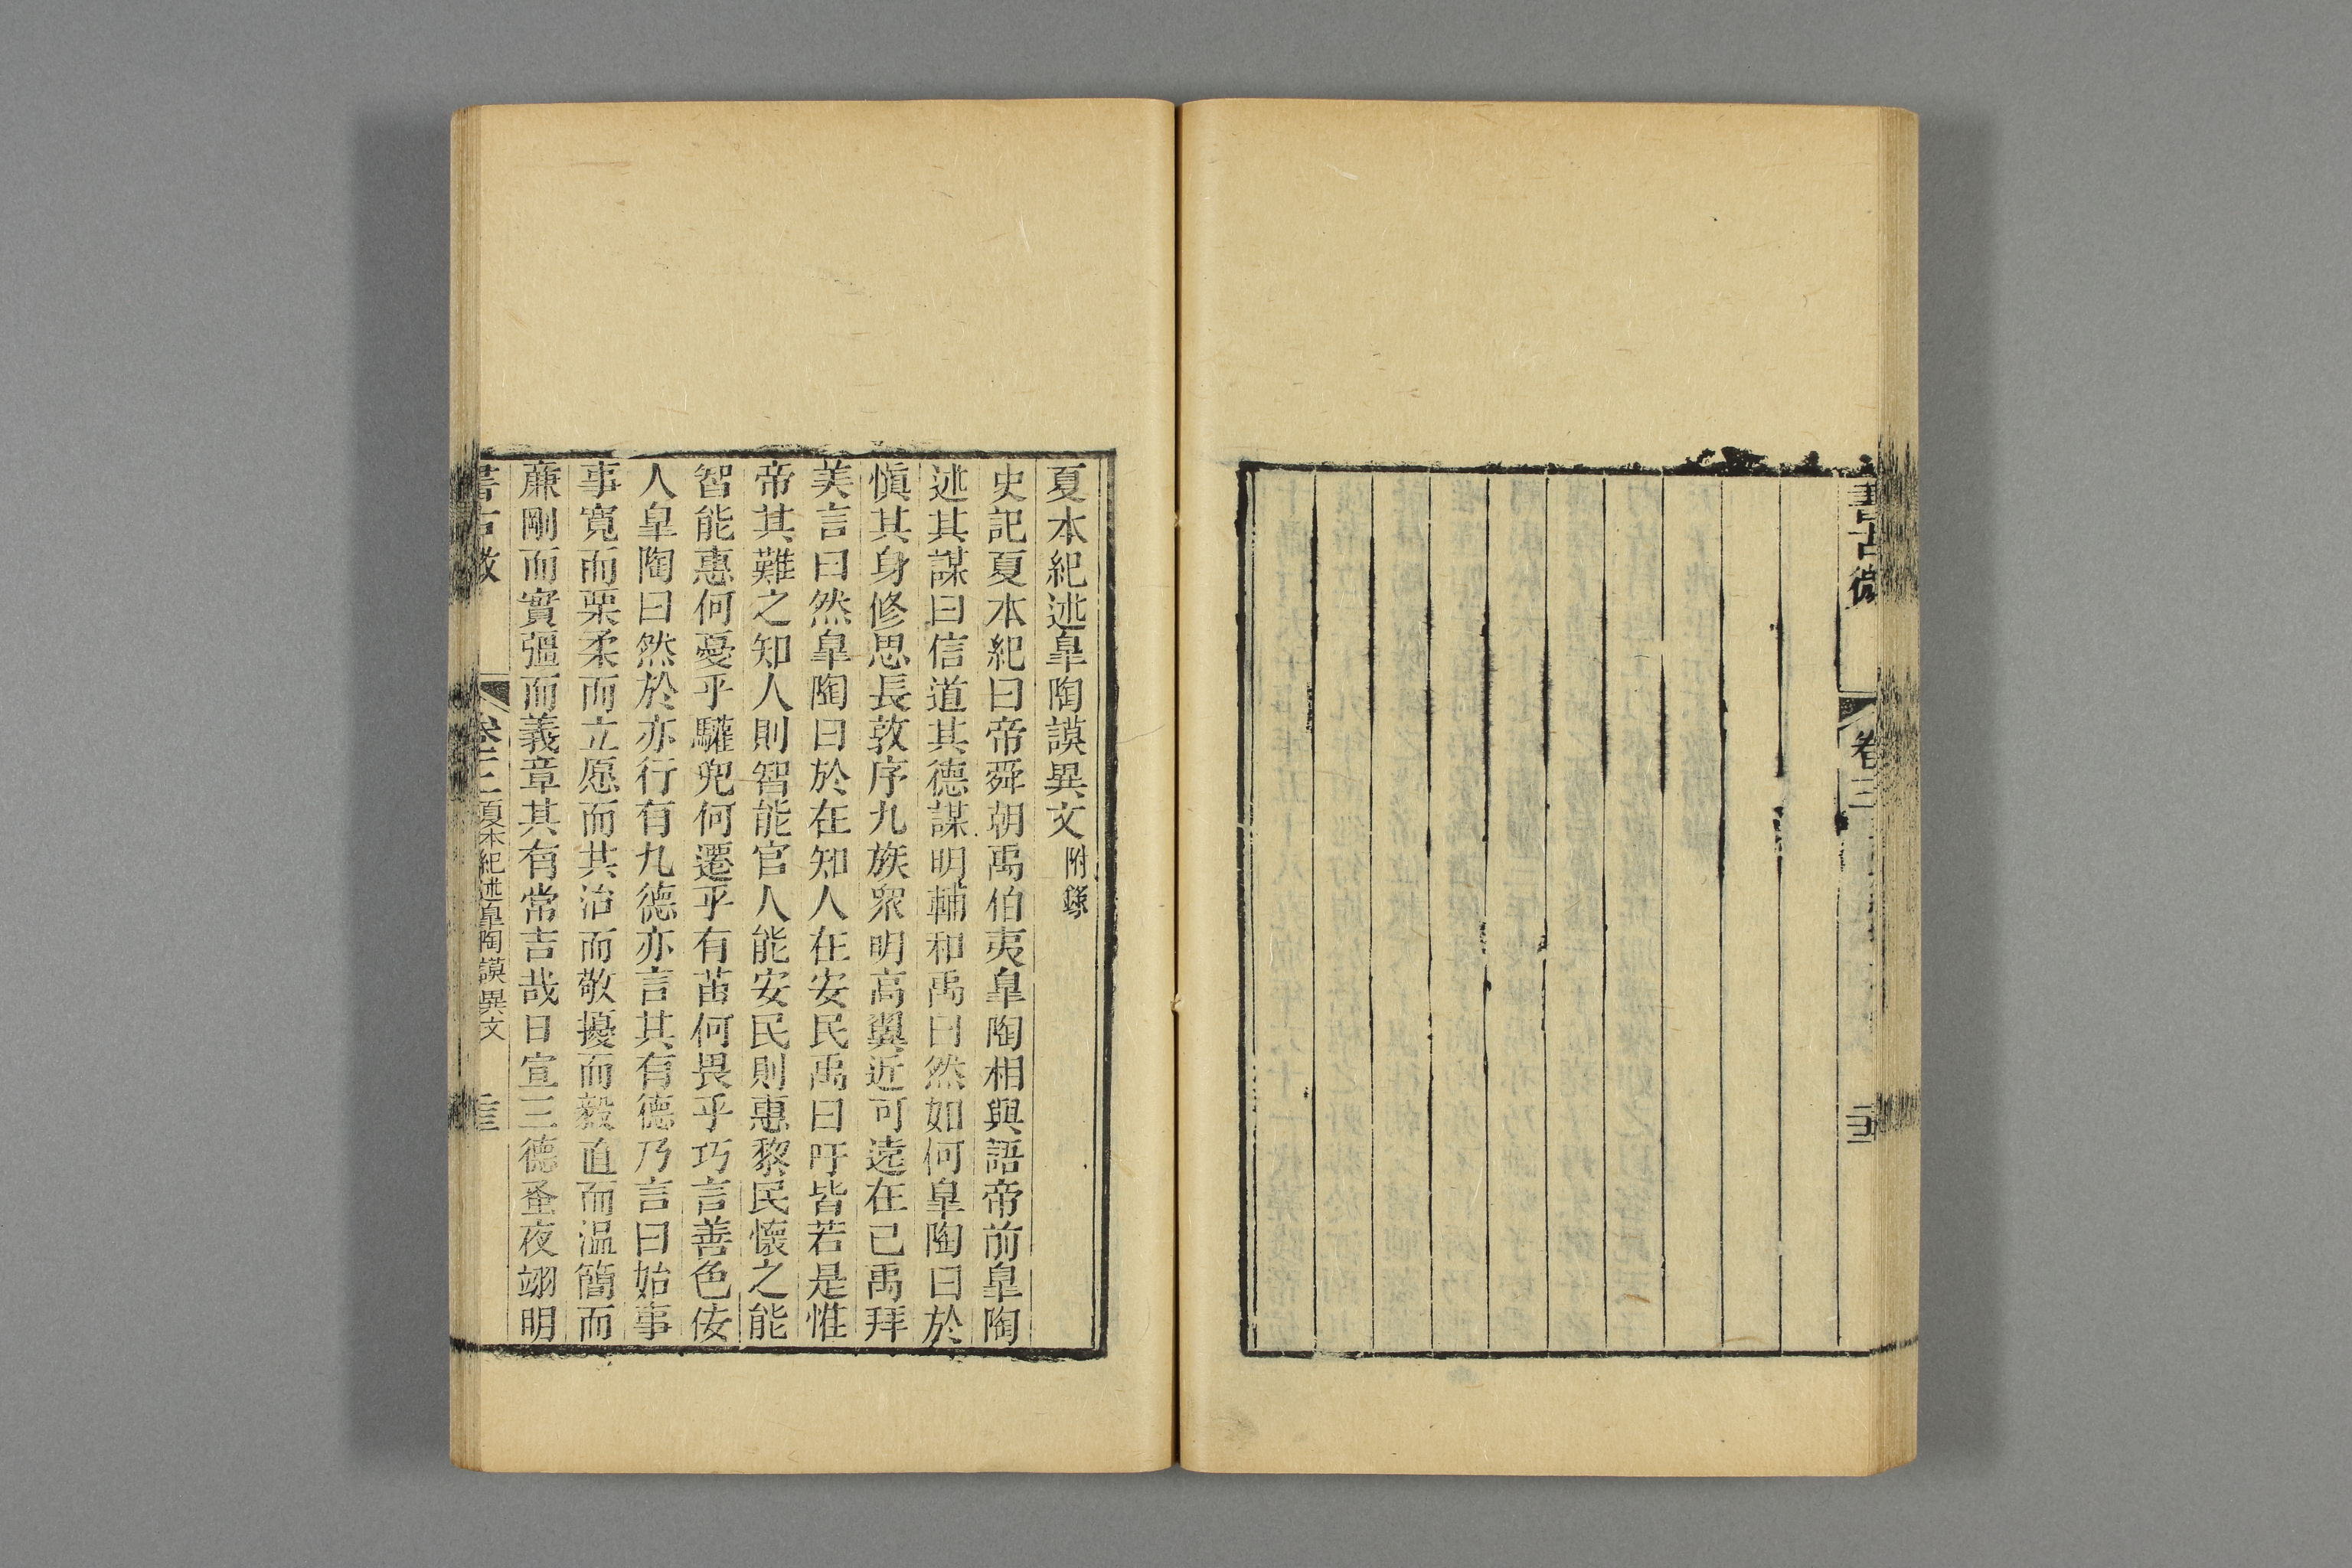 書古微
卷三
夏本紀述臯陶謨異文附錄
史記夏本紀曰帝舜朝禹伯夷臯陶相與語帝前臯陶
述其謀曰信道其德謀明輔和禹曰然如何臯陶曰於
愼其身修思長敦序九族衆明高翼近可遠在已禹拜
美言曰然臯陶曰於在知人在安民禹曰吁皆若是惟
帝其難之知人則智能官人能安民則惠黎民懷之能
智能惠何憂乎驩兜何遷乎有苗何畏乎巧言善色佞
人臯陶曰然於亦行有九德亦言其有德乃言曰始事
事寬而栗柔而立愿而共治而敬擾而毅直而温簡而
廉剛而實彊而義章其有常吉哉日宣三德蚤夜翊明
書古微
卷三 夏本紀述臯陶謨異文